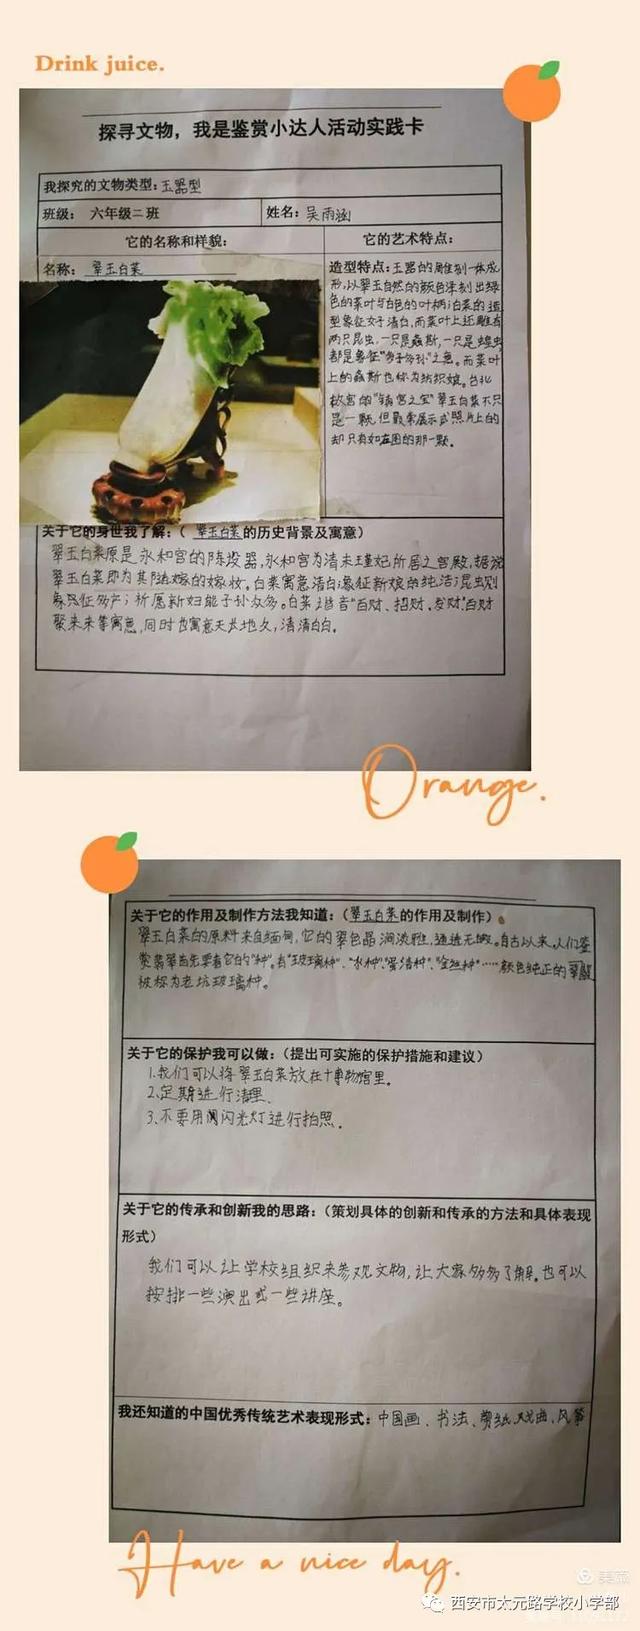 Drink juice.
探寻文物，我是鉴赏小达人活动实践卡
我探究的文物类型：玉器型
班级： 六年级二班
姓名：吴雨涵
它的名称和样貌：
它的艺术特点：
名称： 翠玉白菜
造型特点：玉器的雕刻一体成
形，以翠玉自然的颜色凃刻出绿
色的菜叶与白色的叶柄；白菜的造
型象征女子清白，而菜叶上还雕有
两只昆虫，一只是螽斯，一只是蝗虫
都是象征“多子多孙”之意。而菜叶
上的螽斯也称为纺织娘。台北
故宫的“镇宫之宝”翠玉白菜不只
是一颗，但最常展示或照片上的
却只有如左图的那一颗。
关于它的身世我了解：（ 翠玉白菜 的历史背景及寓意）
翠玉白菜原是永和宫的陈设器，永和宫为清末瑾妃所居之宫殿，据说
翠玉白菜即为其随嫁的嫁妆。白菜寓意清白；象征新娘的纯洁；昆虫则
象征多产；祈愿新妇能子孙众多。白菜谐音“百财、招财、发财”，百财
聚来来等寓意，同时也寓意天长地久，清清白白。
Orange.
关于它的作用及制作方法我知道：（翠玉白菜的作用及制作）
翠玉白菜的原料来自缅甸，它的翠色晶润淡雅，通透无瑕。自古以来，人们鉴
赏翡翠首先要看它的“种”。有“玻璃种”、“水种”、“蛋清种”、“金丝种”……颜色纯正的翠
被称为老坑玻璃种。
关于它的保护我可以做：（提出可实施的保护措施和建议）
1.我们可以将翠玉白菜放在博物馆里。
2.定期进行清理.
3.不要用闪光灯进行拍照.
关于它的传承和创新我的思路：（策划具体的创新和传承的方法和具体表现
形式）
我们可以让学校组织来参观文物，让大家多多了解。也可以
按排一些演出或一些讲座。
我还知道的中国优秀传统艺术表现形式：中国画、书法、剪纸、戏曲、风筝
Have a nice day.
美篇
西安市太元路学校小学部